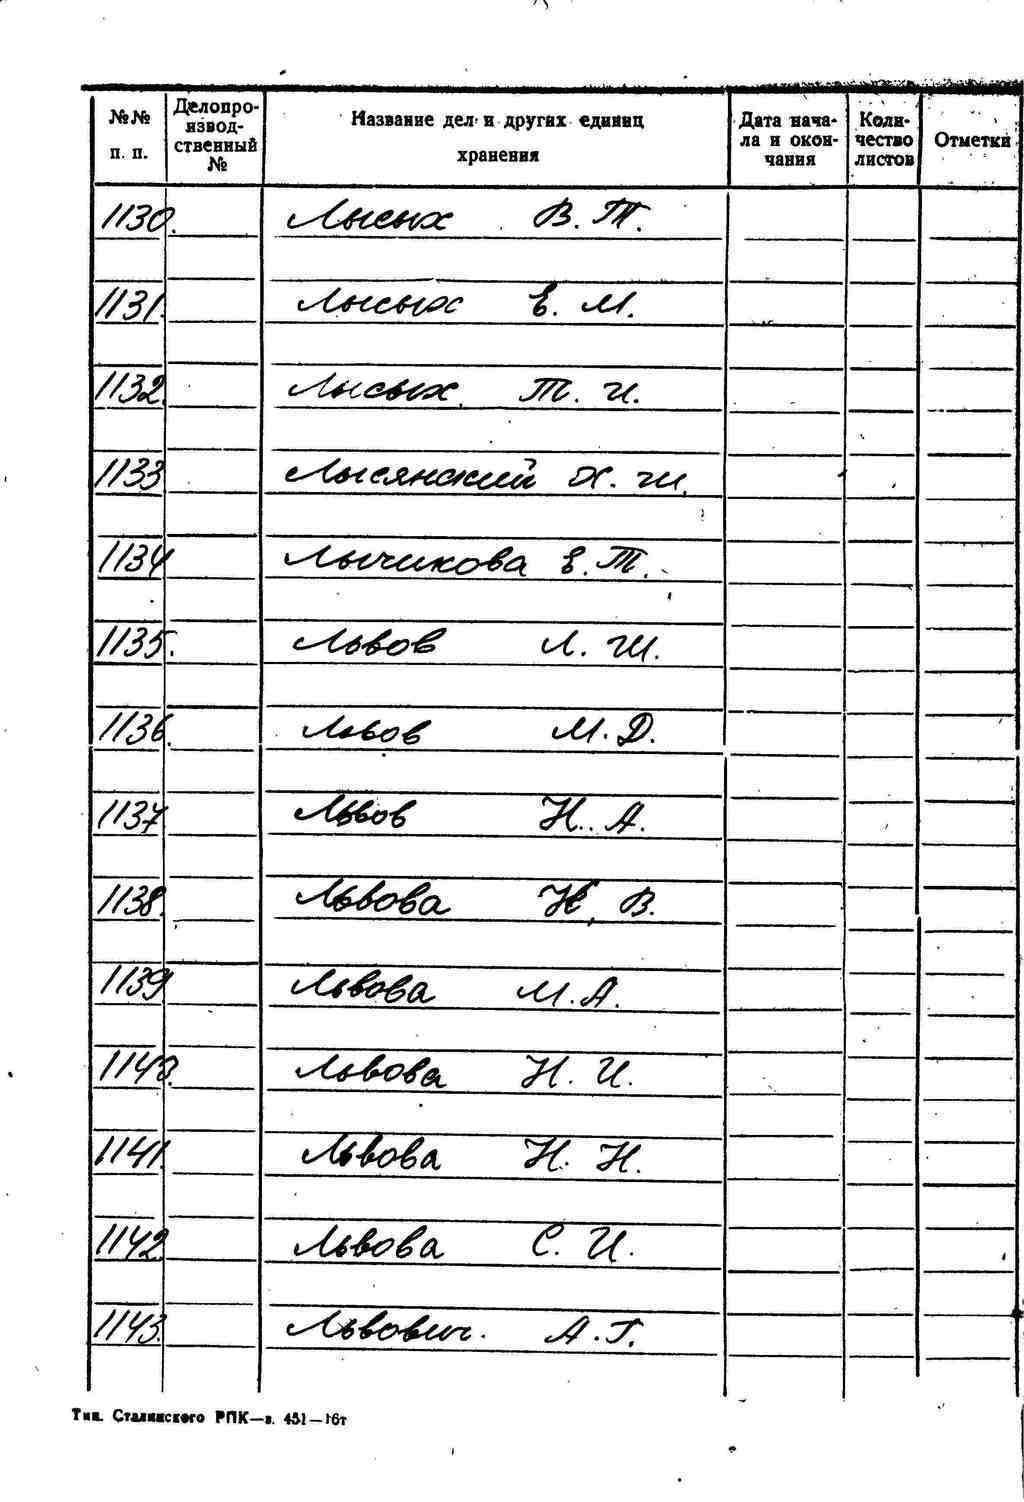 №№ п. п. Делопроизводственный № Название дел и других единиц хранения Дата начала и окончания Количество листов Отметки
1130. Лысых В. Т.
1131. Лысых Е. М.
1132. Лысых Т. И.
1133 Лысянский Х. Ш.
1134 Лычикова Е. Т.
1135. Львов Л. Ш.
1136. Львов М. Д.
1137 Львов Н. А.
1138. Львова К. В.
1139 Львова М. А.
1140. Львова Н. И.
1141. Львова Н. Н.
1142. Львова С. И.
1143. Львович. А. Г.
Тип. Сталинского РПК—з. 451—16т